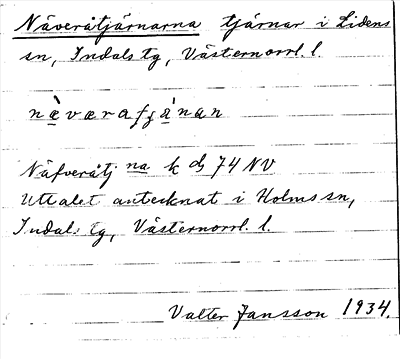 Näveråtjärnarna tjärnar i Lidens
sn, Indals tg, Västernorrl. l.
næværa
Näfveråtj na k bl 74 NV
Uttalet antecknat i Holms sn,
Indals tg, Västernorrl. l.
Valter Jansson 1934.